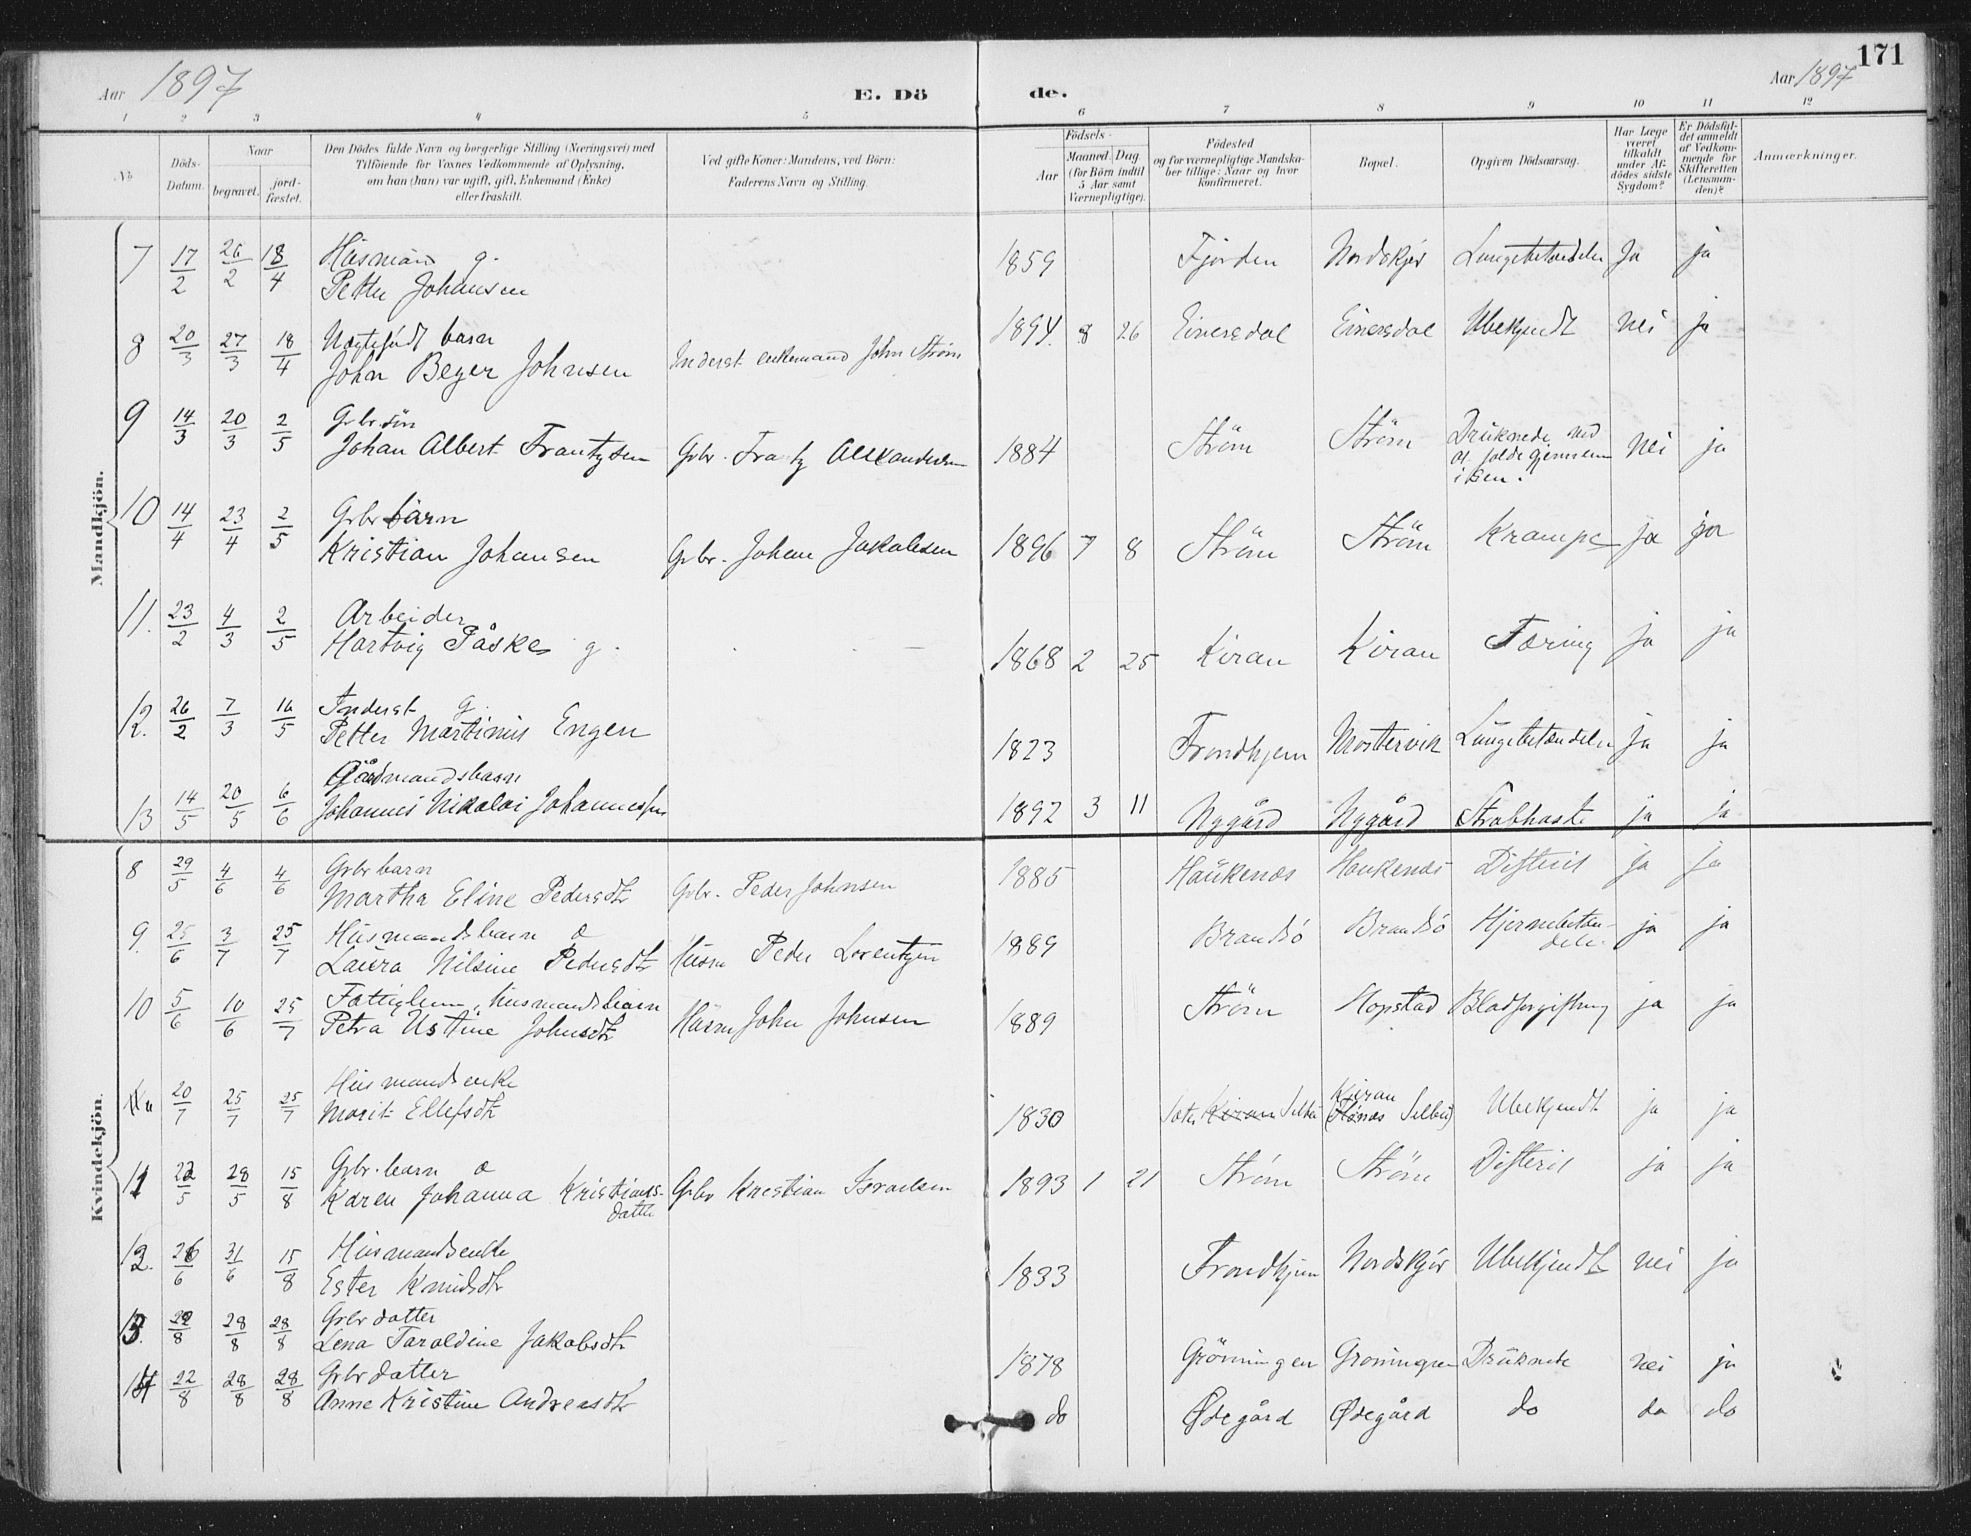 171
Aar 1897
E. Dö
de.
Aar 1897
1 2 3 4 5 6 7 8 9 10 11 12
No
Döds-Datum.
Naar
begravet.
jord-fæstet.
Den Dödes fulde Navn og borgerlige Stilling (Næringsvei) med
Tilföiende for Voxnes Vedkommende af Oplysning,
om han (hun) var ugift, gift, Enkemand (Enke)
eller fraskilt.
Ved gifte Koner: Mandens, ved Börn:
Faderens Navn og Stilling.
Födsels-
Aar
Maaned. Dag
(for Börn indtil
5 Aar samt
Værnepligtige).
Födested
og for værnepligtige Mandska-
ber tillige: Naar og hvor
konfirmeret.
Bopæl.
Opgiven Dödsaarsag.
Har Læge
været
tilkaldt
under Af-
dödes sidste
Sygdom?
Er Dödsfal-
det anmeldt
af Vedkom-
mende for
Skifteretten
(Lensman-
den)?
Anmærkninger.
Mandkjön.
7 17/2 26/2 18/4 Husmand g. 1859 Fjorden Nordskjör Lungebetændelse Ja ja
Petter Johansen
8 20/3 27/3 18/4 Uægtefödt barn 1894. 8 26 Einersdal Einersdal Ubekjendt nei ja
John Beyer Johnsen Inderst enkemand John Ström
9 14/3 20/3 2/5 Grbr. sön
Johan Albert Frantzsen Grbr. Frantz Alexandersen 1884 Ström Ström Druknede ved
at falde gjennem
isen. nei ja
10 14/4 23/4 2/5 Grbr barn
Kristian Johansen Grbr. Johan Jakobsen 1896 7 8 Ström Ström Krampe ja ja
11. 23/2 4/3 2/5 Arbeider
Hartvig Påske g. 1868 2 25 Kiran Kiran Tæring ja ja
12. 26/2 7/3 16/5 Inderst g.
Petter Martinus Engen 1823 Trondhjem Mostervik Lungebetændelse ja ja
Gårdmandsbarn
13 14/5 20/5 6/6 Johannes Nikolai Johannessen 1892 3 11 Nygård Nygård Strubhoste ja ja
Kvindekjön.
8 29/5 4/6 4/6 Grbr barn
Martha Eline Pedersdtr Grbr. Peder Johnsen 1885 Haukenes Haukenes Difterit ja ja
9. 25/6 3/7 25/7 Husmandsbarn
Laura Nilsine Pedersdtr Husm Peder Lorentzen 1889 Brandsö Brandsö Hjernebetæn-
delse ja ja
10 5/6 10/6 25/7 Fattiglem, husmandsbarn
Petra Ustine Johnsdtr Husm John Johnsen 1889 Ström Hopstad Blodforgiftning ja ja
20/7 25/7 25/7 Husmandsenke
Marit Ellefsdtr 1830 Kiran Selbu Kiran
Selbu) Ubekjendt ja ja
11 22/5 28/5 15/8 Grbr. barn
Karen Johanna Kristians-
datter Grbr Kristian Israelsen 1893 1 21 Ström Ström Difterit ja ja
12. 26/6 31/6 15/8 Husmandsenke
Ester Knudsdtr 1833 Trondhjem Nordskjör Ubekjendt nei ja
13. 22/8 28/8 28/8 Grbr datter
Lena Taraldine Jakobsdtr 1878 Grönningen Groningen Druknede nei ja
14 22/8 28/8 28/8 Grbr datter
Anne Kristine Andreasdtr do Ødegård Ødegård do do do